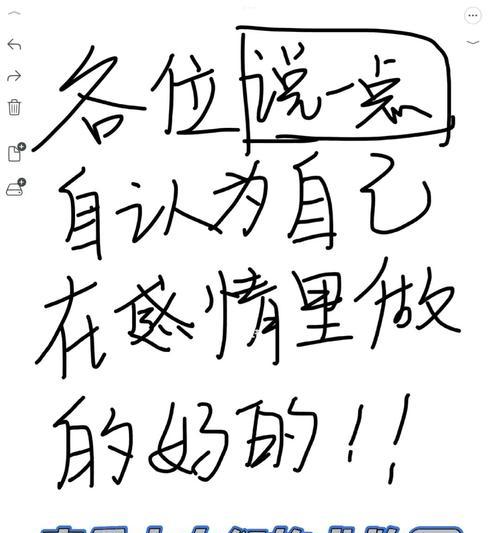 各位说一点
自认为自己
在感情里做
的好的!!